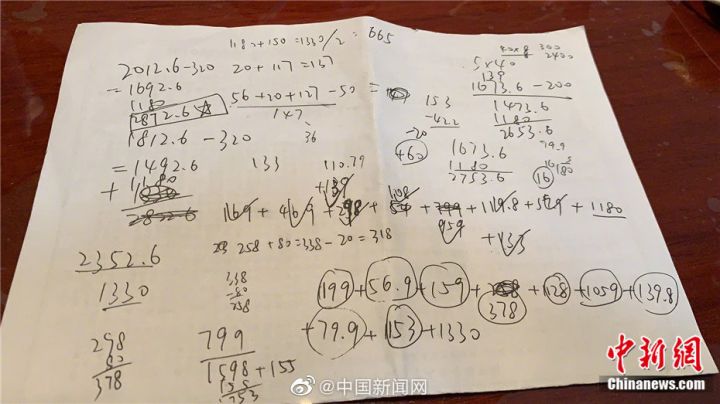 1180+150=1330/2=665
2012.6-320 20+117=137
=1692.6
1180
2872.6
56+20+127-50=
1812.6-320 36
=1492.6 133 110.79
+139
5×40
139
1673.6-200
1473.6
1180
2653.6
153
-422
-20
+60
1673.6
1180
2753.6
79.9
16
180
169+469+298+54+799+1119.8+529+1180
959
+133
258+80=338-20=318
2352.6
1330
338
-80
258
199+56.9+159+128+1059+139.8
378
+79.9+153+1330
298
80
378
799
1598+155
753
@中国新闻网
中新网
Chinanews.com